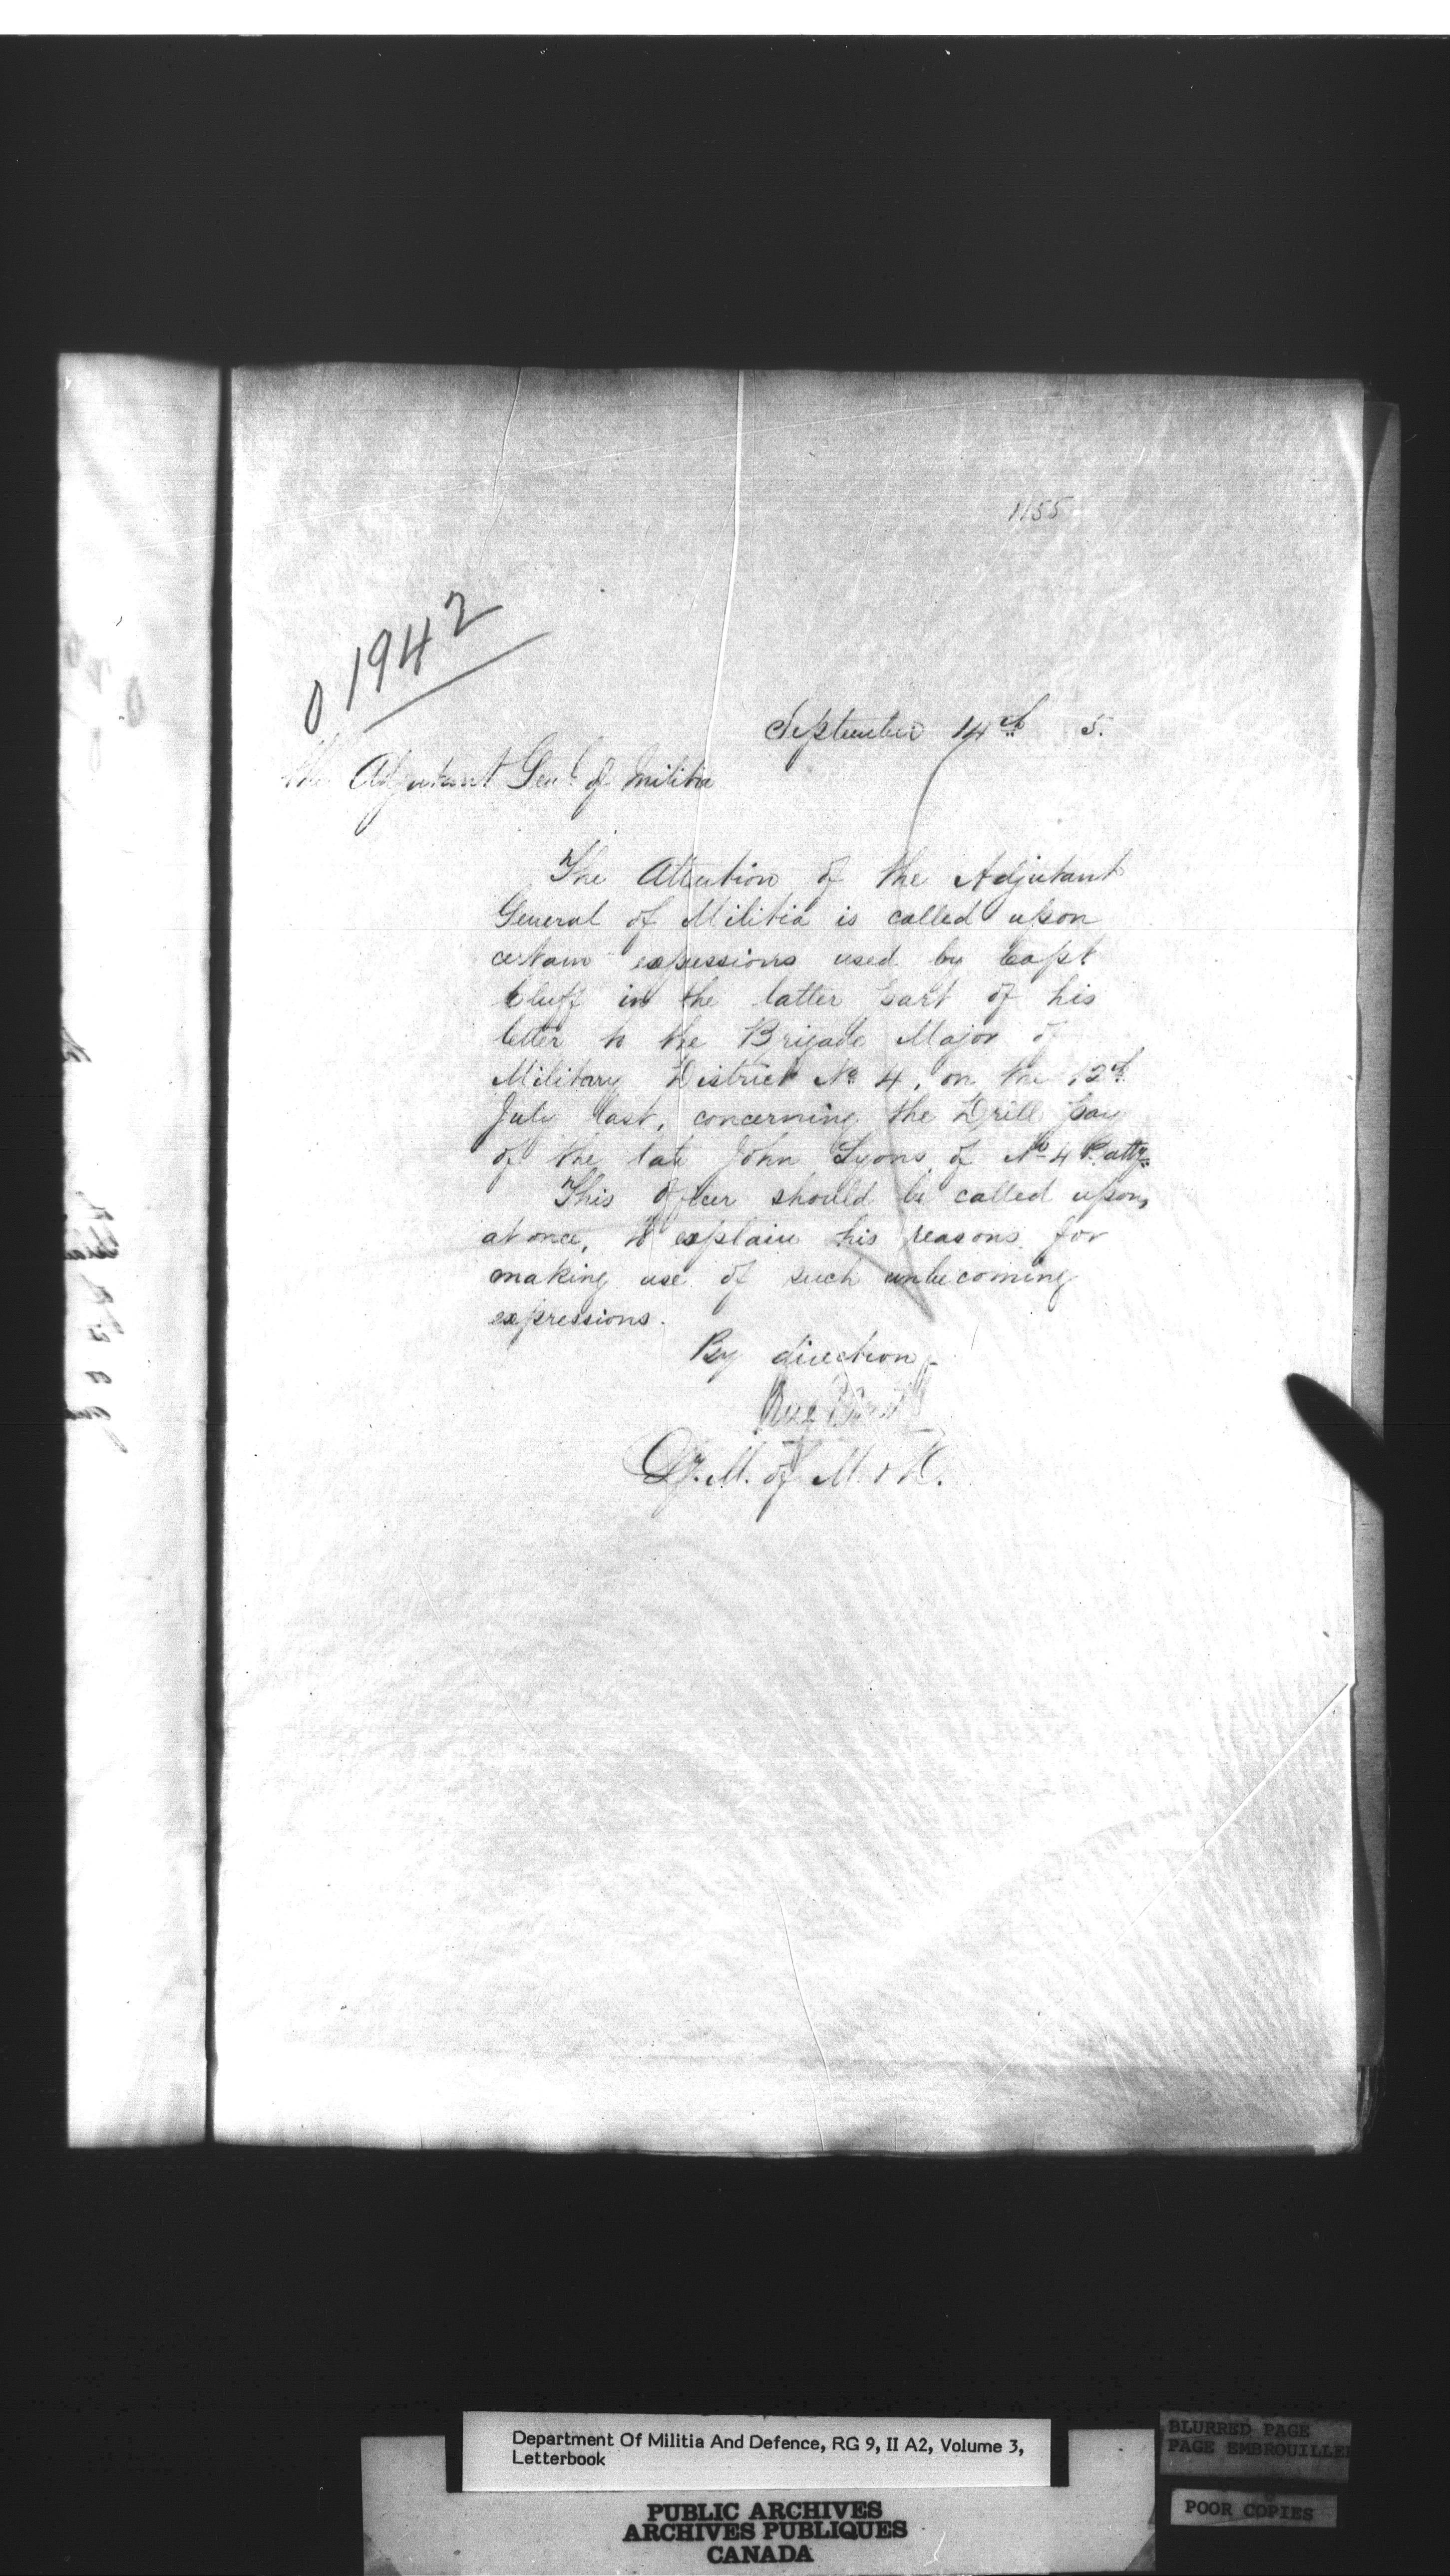 1155
0 1942
September 14th 5.
The Adjutant Genl of Militia
The Attention of the Adjutant
General of Militia is called upon
certain expressions used by Capt
Cluff in the latter part of his
letter to the Brigade Major of
Military District No 4, on the 12th
July last, concerning the Drill pay
of the late John Lyons of No 4 Batty.
This Officer should be called upon,
at once, to explain his reasons for
making use of such unbecoming
expressions.
By direction
Dy. M. of M. & D.
Department Of Militia And Defence, RG 9, II A2, Volume 3,
Letterbook
BLURRED PAGE
PAGE EMBROUILLEE
POOR COPIES
PUBLIC ARCHIVES
ARCHIVES PUBLIQUES
CANADA